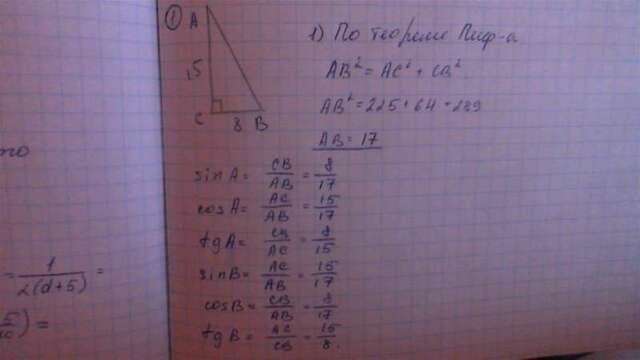 ① A
15
C 8 B
1) По теореме Пиф-а
AB² = AC² + CB²
AB² = 225 + 64 = 289
AB = 17
sin A = CB/AB = 8/17
cos A = AC/AB = 15/17
tg A = CB/AC = 8/15
sin B = AC/AB = 15/17
cos B = CB/AB = 8/17
tg B = AC/CB = 15/8.
= 1/2(d+5) =